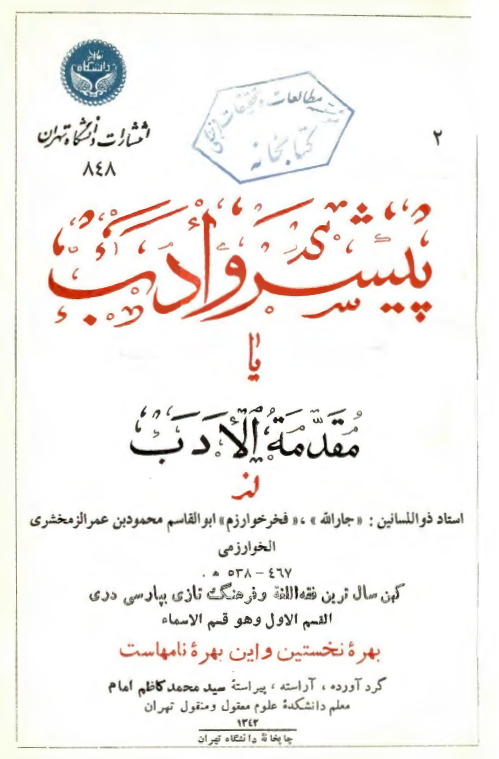 دانشگاه
انتشارات دانشگاه تهران
٨٤٨
٢
مطالعات و تحقیقات
کتابخانه
پیشرو ادب
یا
مُقَدَّمَةُ الْاَدَب
از
استاد ذواللسانین : «جارالله» ، «فخرخوارزم» ابوالقاسم محمودبن عمرالزمخشری
الخوارزمی
٤٦٧ – ٥٣٨ ه .
کهن سال ترین فقه‌اللغة و فرهنگ تازی بپارسی دری
القسم الاول وهو قسم الاسماء
بهرهٔ نخستین و این بهرهٔ نامهاست
گرد آورده ، آراسته ، پیراستهٔ سید محمد کاظم امام
معلم دانشکدهٔ علوم معقول ومنقول تهران
١٣٤٢
چاپخانهٔ دانشگاه تهران